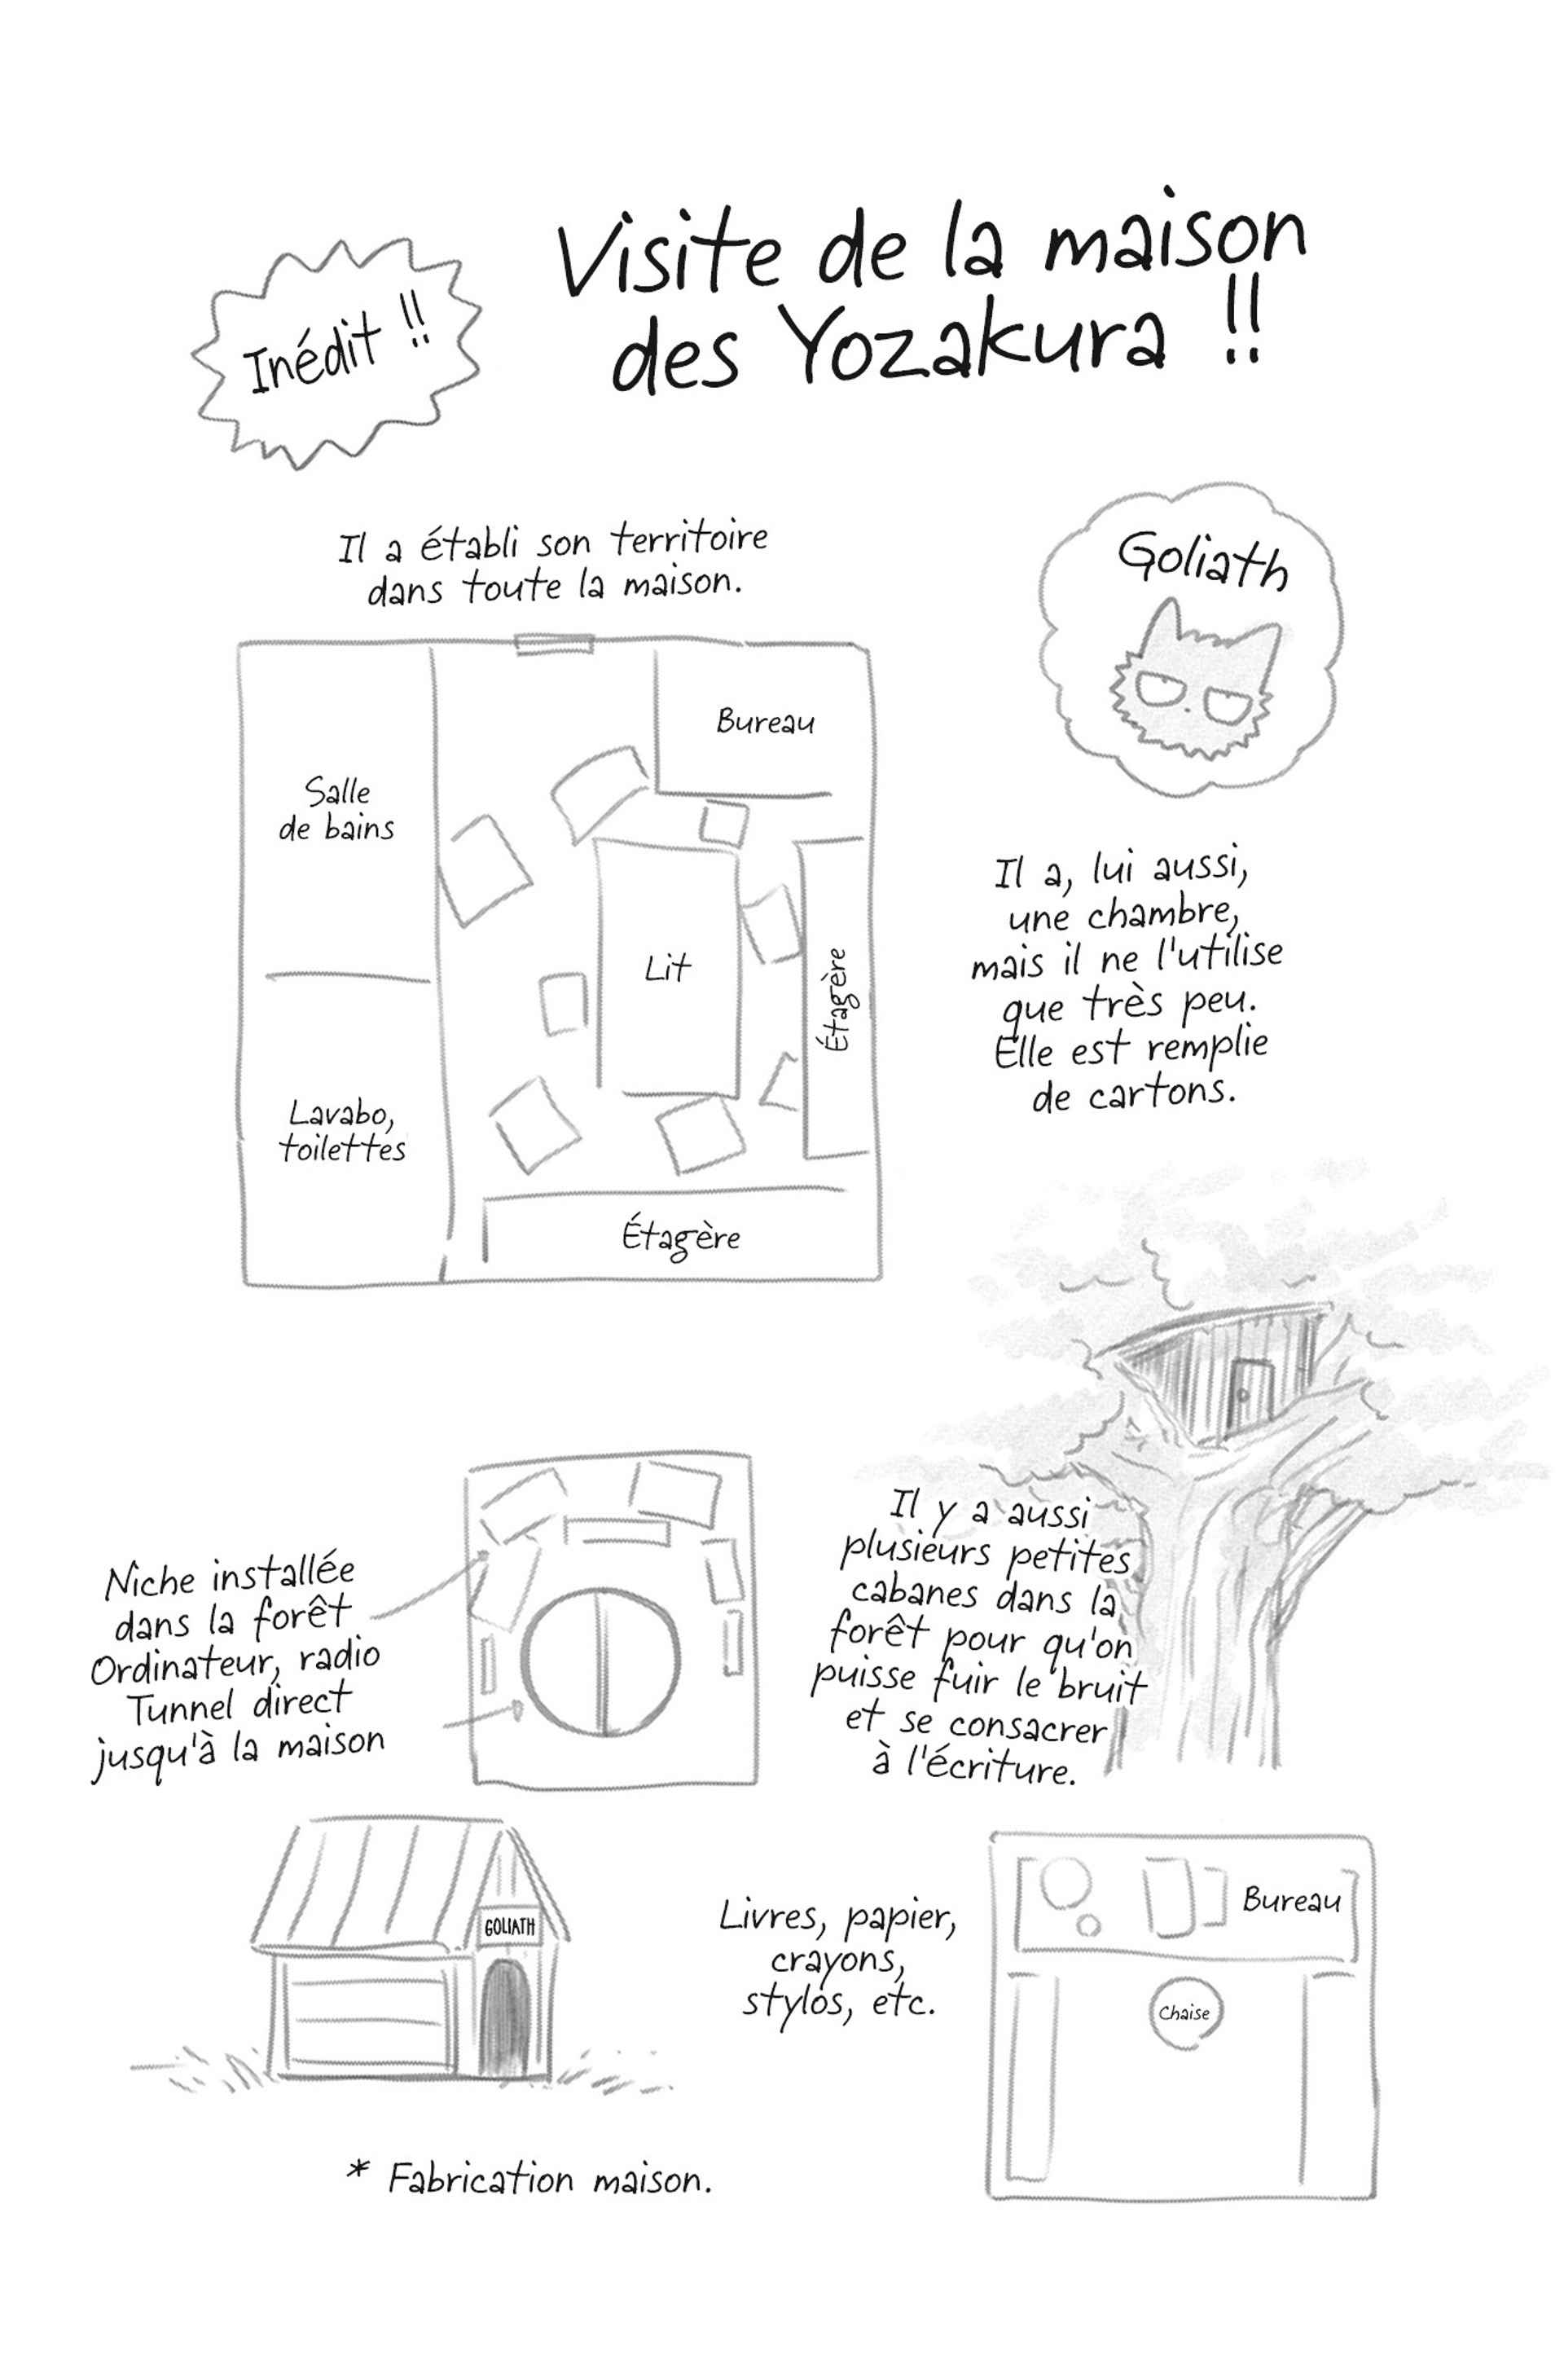 Inédit !!
Visite de la maison
des Yozakura !!
Il a établi son territoire
dans toute la maison.
Goliath
Bureau
Salle
de bains
Lit
Étagère
Lavabo,
toilettes
Étagère
Il a, lui aussi,
une chambre,
mais il ne l'utilise
que très peu.
Elle est remplie
de cartons.
Niche installée
dans la forêt
Ordinateur, radio
Tunnel direct
jusqu'à la maison
Il y a aussi
plusieurs petites
cabanes dans la
forêt pour qu'on
puisse fuir le bruit
et se consacrer
à l'écriture.
GOLIATH
Livres, papier,
crayons,
stylos, etc.
Bureau
Chaise
* Fabrication maison.